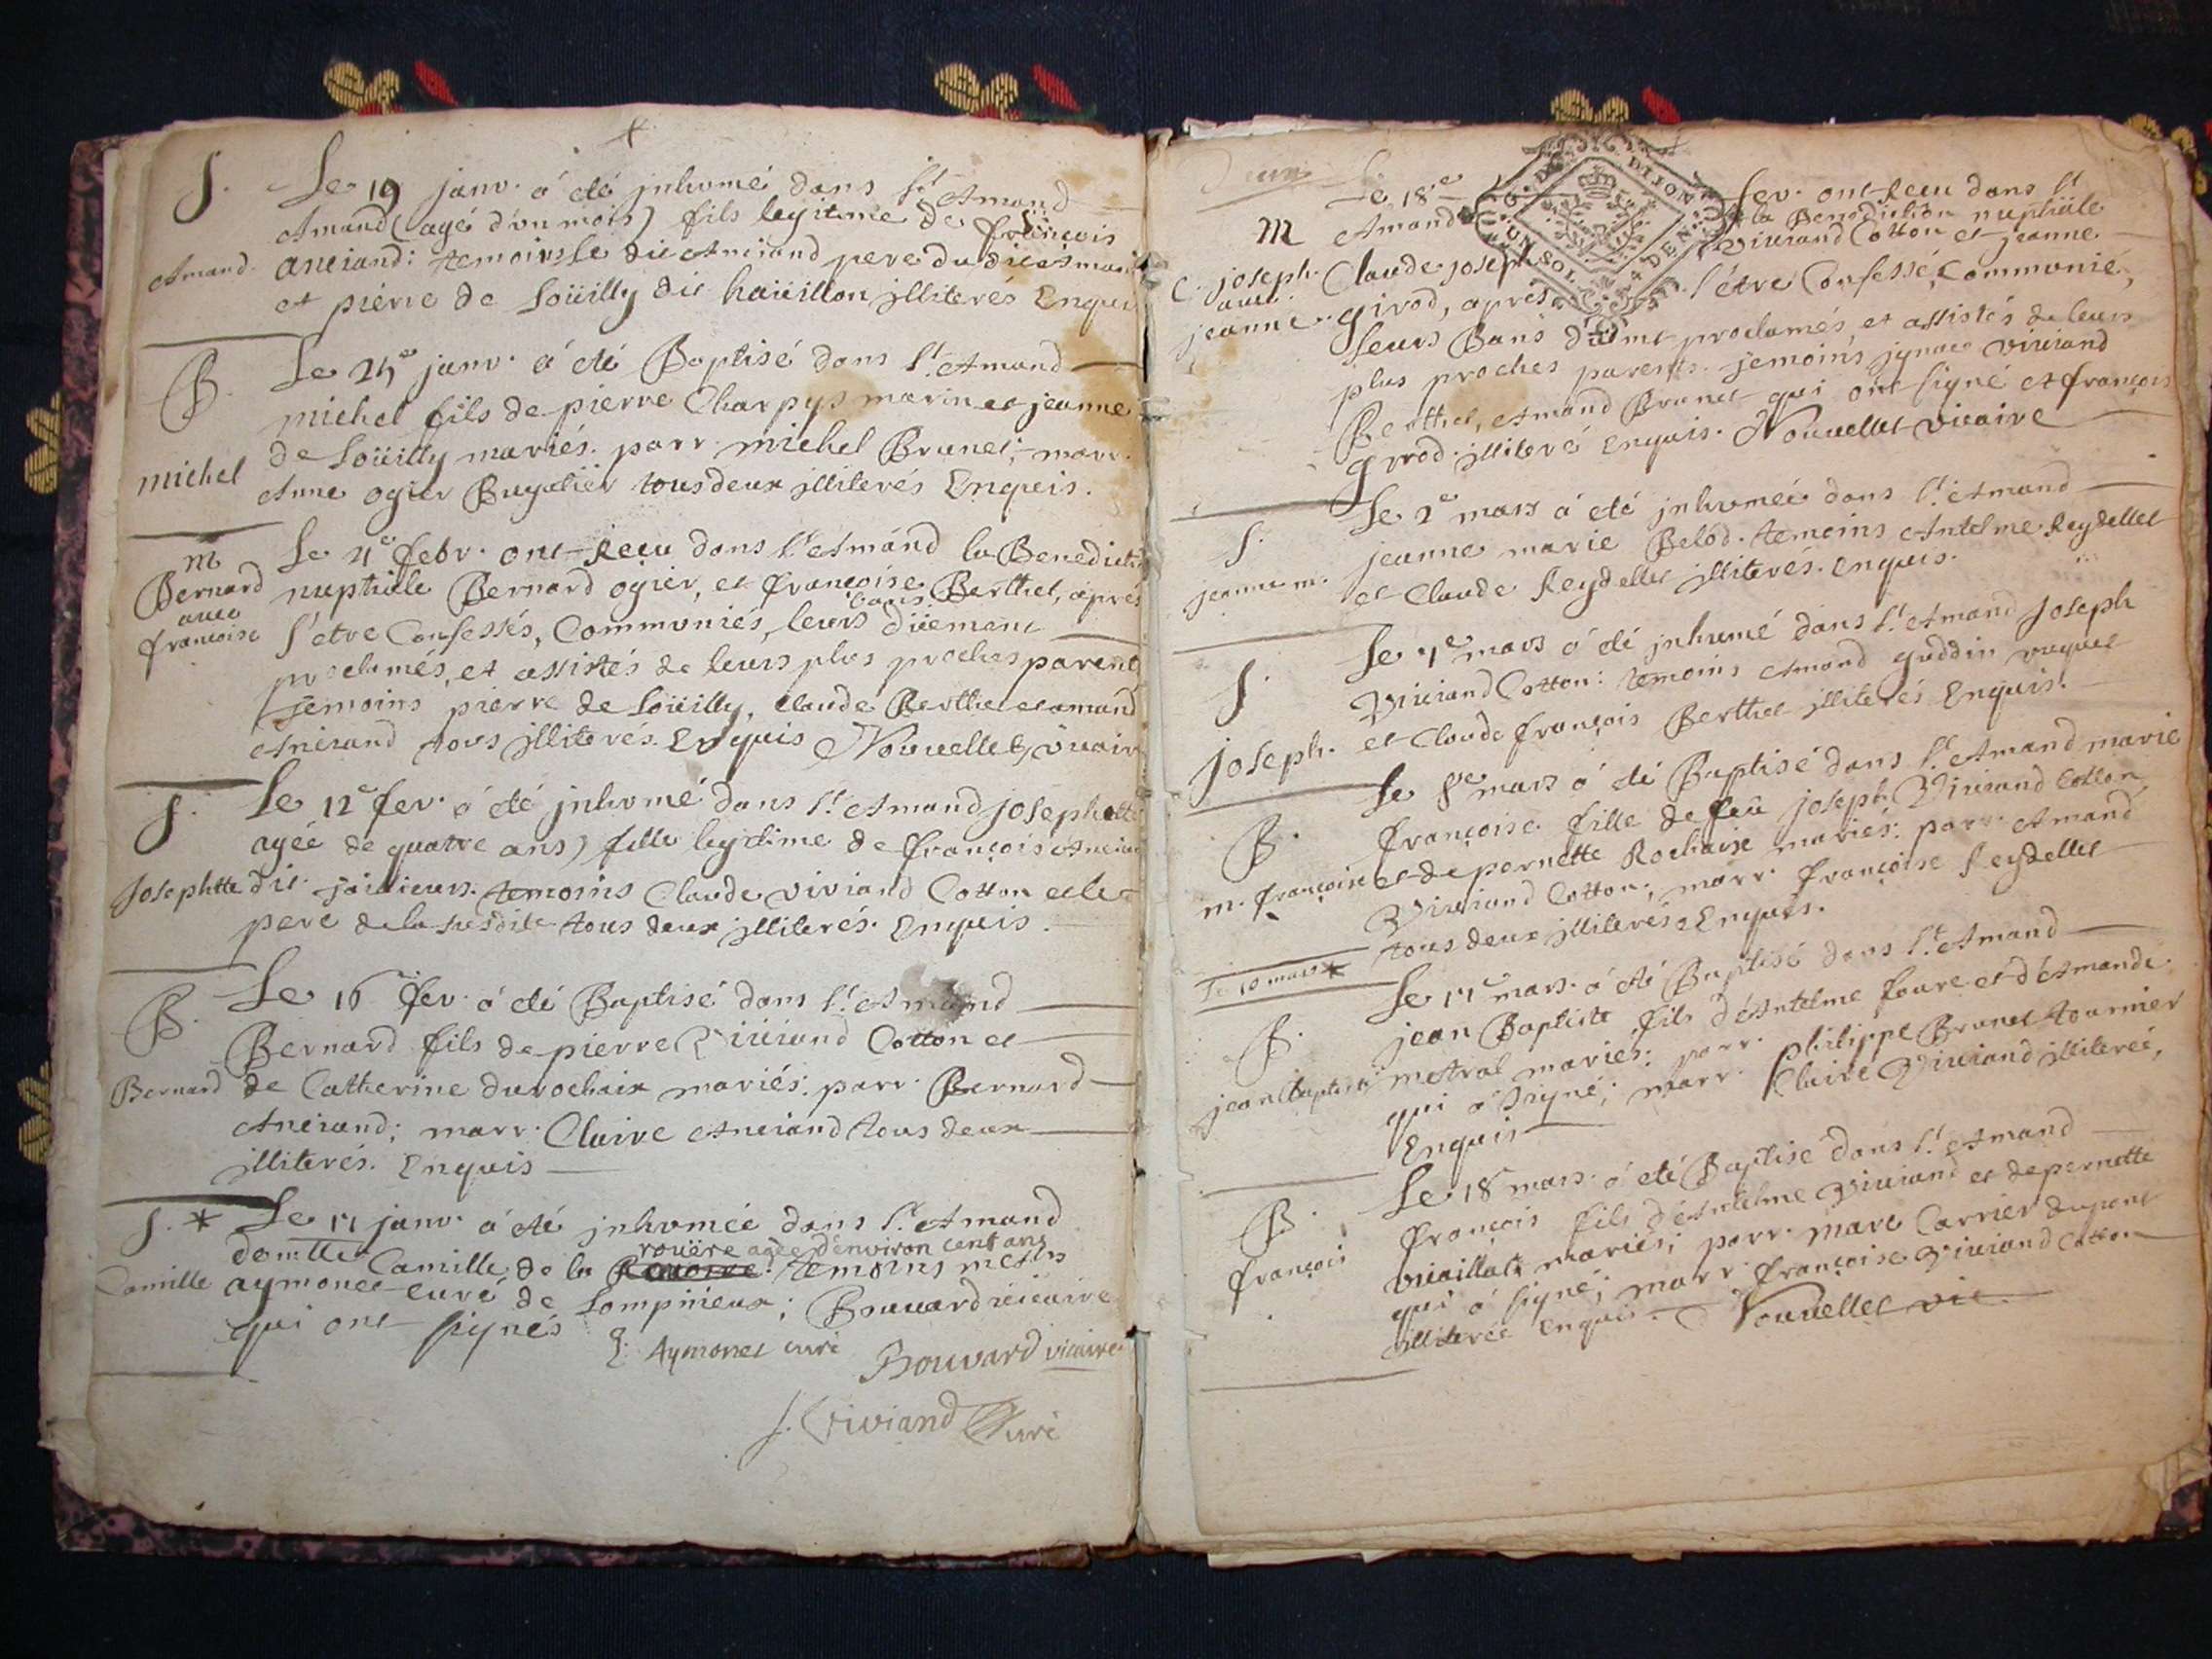 S. Le 19 janv. á eté jnhumé dans St Amand
Amand (agé d'un mois) fils legitime de françois
Amand. Aneiand: temoins le dit Aneiand pere du dit Amand
et pierre de Loüilly dit haüillon jlliterés Enquis
B. Le 25e janv. á eté Baptisé dans St Amand
michel fils de pierre Charpys marin et jeanne
michel de Loüilly mariés. parr. michel Brunet; marr.
Anne ogier Bugalier tous deux jlliterés Enquis.
m Le 4e febr. ont Reçu dans St Amand la Benedicti
Bernard avec françoise nuptiale Bernard ogier, et françoise Berthet, aprés
s'etre Confessés, Communiés, leurs bans düement
proclamés, et assistés de leurs plus proches parent
temoins pierre de Loüilly, Claude Berthet et amand
Aneiand tous jlliterés. Enquis Nouvellet, vicaire
S. Le 12e fev. á eté jnhumé dans St Amand josephtte
agée de quatre ans) fille legitime de françois Aneiand
Josephtte dit temoins Claude viviand Cotton et le
pere de la susdite tous deux jlliterés. Enquis.
B. Le 16 fev. á eté Baptisé dans St Amand
Bernard fils de pierre Viviand Cotton et
Bernard de Catherine durochaix mariés. parr. Bernard
Aneiand; marr. Claire Aneiand tous deux
jlliterés. Enquis
S. * Le 17 janv. á eté jnhumée dans St Amand
rouëre agée d'environ cent ans
Camille demlle Camille de la temoins mesrs
aymonet curé de Lompnieux; Bouvard vicaire
qui ont signés
Aymonet curé Bouvard vicaire
J. Viviand Curé
Le 18e fev. ont Reçu dans St
m Amand la Benediction nuptiale
C. joseph avec jeanne Claude joseph Viviand Cotton et jeanne
girod, aprés s'étre Confessé, Communié,
leurs Bans düemt proclamés et assistés de leurs
plus proches parents. temoins jgnace viviand
Berthet, Amand Brunet qui ont signé et françois
girod jlliteré Enquis. Nouvellet vicaire
G. DE DIJON
UN SOL 4 DEN.
S. Le 2e mars á eté jnhumée dans St Amand
jeanne m. jeanne marie Belod. temoins Antelme Reydellet
et Claude Reydellet jlliterés. Enquis.
S. Le 7e mars á eté jnhumé dans St Amand Joseph
Viviand Cotton: temoins Amand guddin
joseph. et Claude françois Berthet jlliterés Enquis.
B. Le 8e mars á eté Baptisé dans St Amand marie
françoise fille de feu joseph Viviand Cotton
m. françoise et de pernette Rochaise mariés: parr. Amand
Viviand Cotton; marr. françoise Reydellet
tous deux jlliterés Enquis.
Le 10 mars *
B. Le 17e mars á eté Baptisé dans St Amand
jean Baptiste fils d'Antelme foure et d'Amande
jean Baptiste metral mariés: parr. philippe Brunet tournier
qui á signé; marr. Claire Viviand jlliterée,
Enquis
B. Le 18 mars á eté Baptisé dans St Amand
françois françois fils d'Antelme Viviand et de pernette
vuaillat mariés; parr. marc Carrier dupont
qui á signé; marr. françoise Viviand Cotton
jlliterée Enquis. Nouvellet vic.